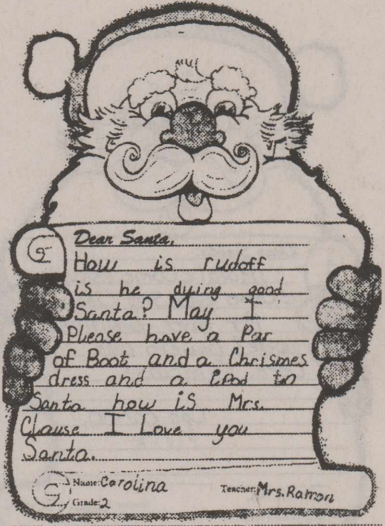 Dear Santa,
How is rudoff
is he dying good
Santa? May I
Please have a Par
of Boot and a Chrismes
dress and a ipod too
Santa how is Mrs.
Clause I Love you
Santa.
Name: Carolina Teacher: Mrs. Ramon
Grade: 2